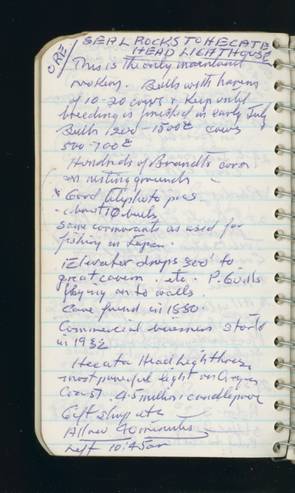 ORE/
SEAL ROCKS TO HECATE
HEAD LIGHTHOUSE
This is the only mainland
rookery. Bulls with harems
of 10-20 cows & keep until
breeding is finished in early July
Bulls 1200-1500# cows
500-700#
Hundreds of Brandts corm
on nesting grounds
* Good telephoto pics
about 10 bulls
Same cormorants as used for
fishing in Japan.
Elevator drops 300' to
great cavern. etc. P. Gulls
on to walls.
Cave found in 1880.
Commercial business started
in 1932
Hecata Head Lighthouse
most powerful light on Oregon
Coast. 4.5 million candlepower
Gift shop etc
Allow 40 minutes
Left 10:45am